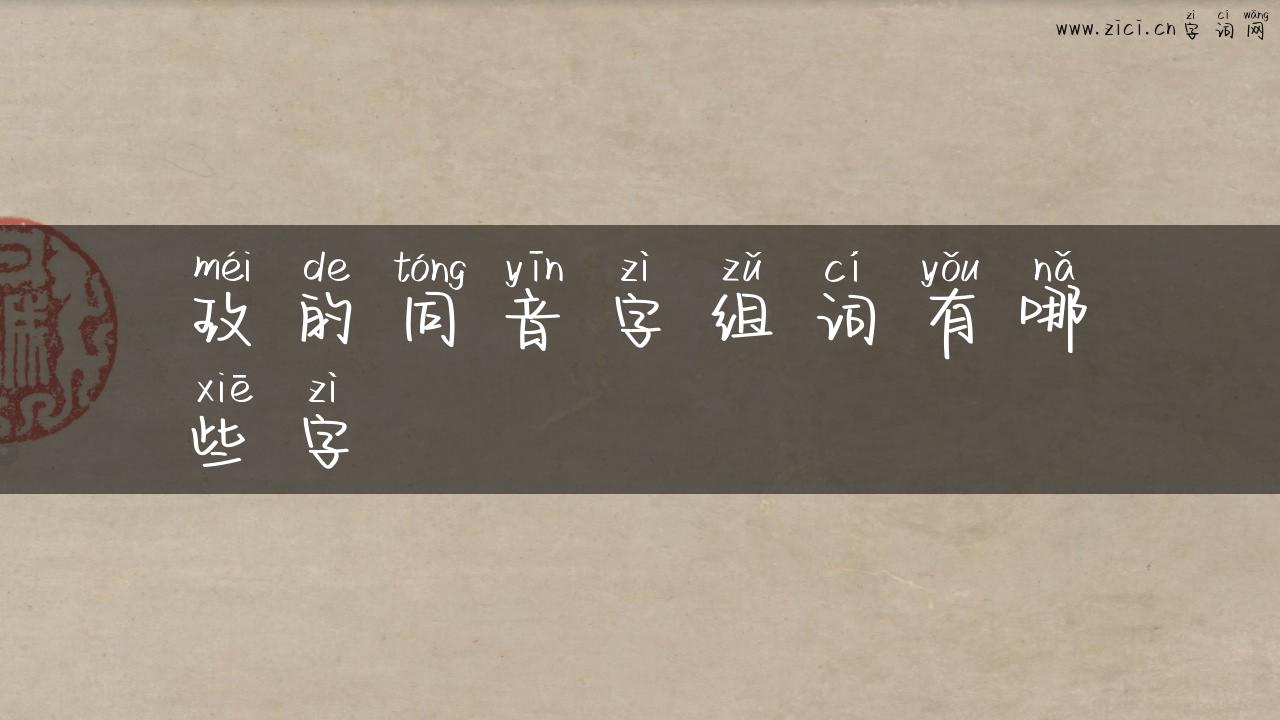 zì cí wǎng
www.zici.cn 字词网
méi de tóng yīn zì zǔ cí yǒu nǎ
玫的同音字组词有哪
xiē zì
些字